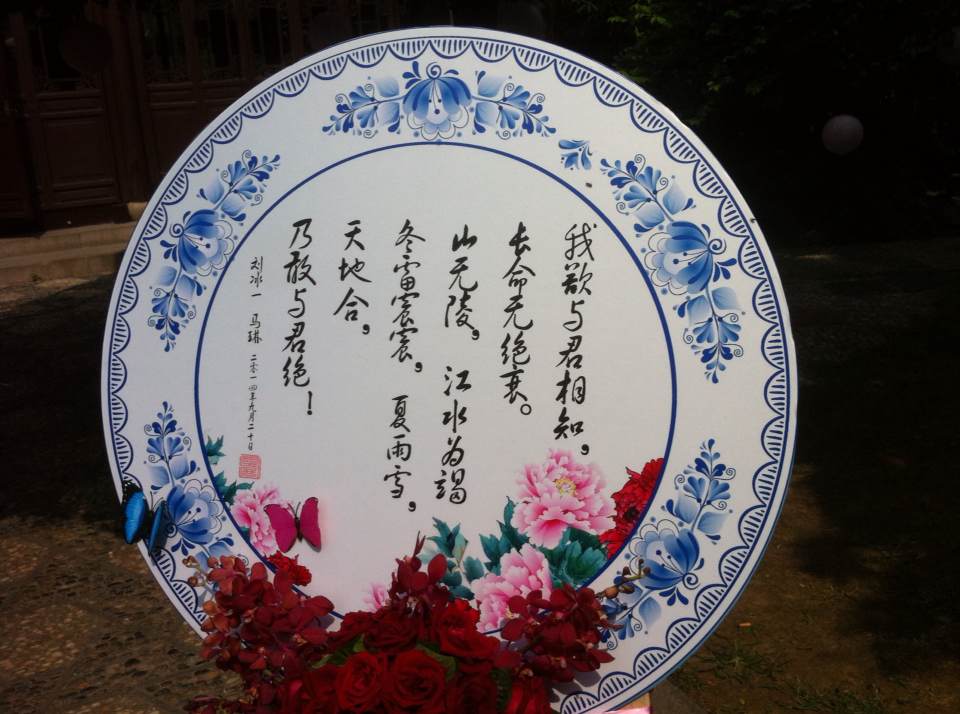 我欲与君相知，
长命无绝衰。
山无陵，江水为竭
冬雷震震，夏雨雪，
天地合，
乃敢与君绝！
刘冰一 马琳 二零一四年九月二十日